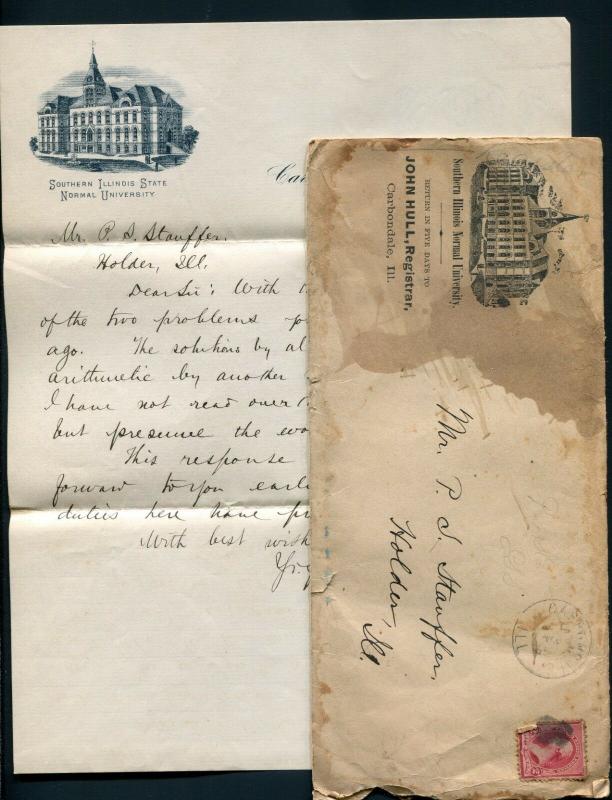 SOUTHERN ILLINOIS STATE
NORMAL UNIVERSITY.
Car
Mr. P. S. Stauffer,
Holder, Ill.
Dear Sir: With
of the two problems
ago. The solutions by al
arithmetic by another
I have not read over
but presume the
This response
forward to you earl
duties here have pr
With best wish
Southern Illinois Normal University.
RETURN IN FIVE DAYS TO
JOHN HULL, Registrar,
Carbondale, Ill.
Mr. P. S. Stauffer,
Holder,
Ill.
ILL